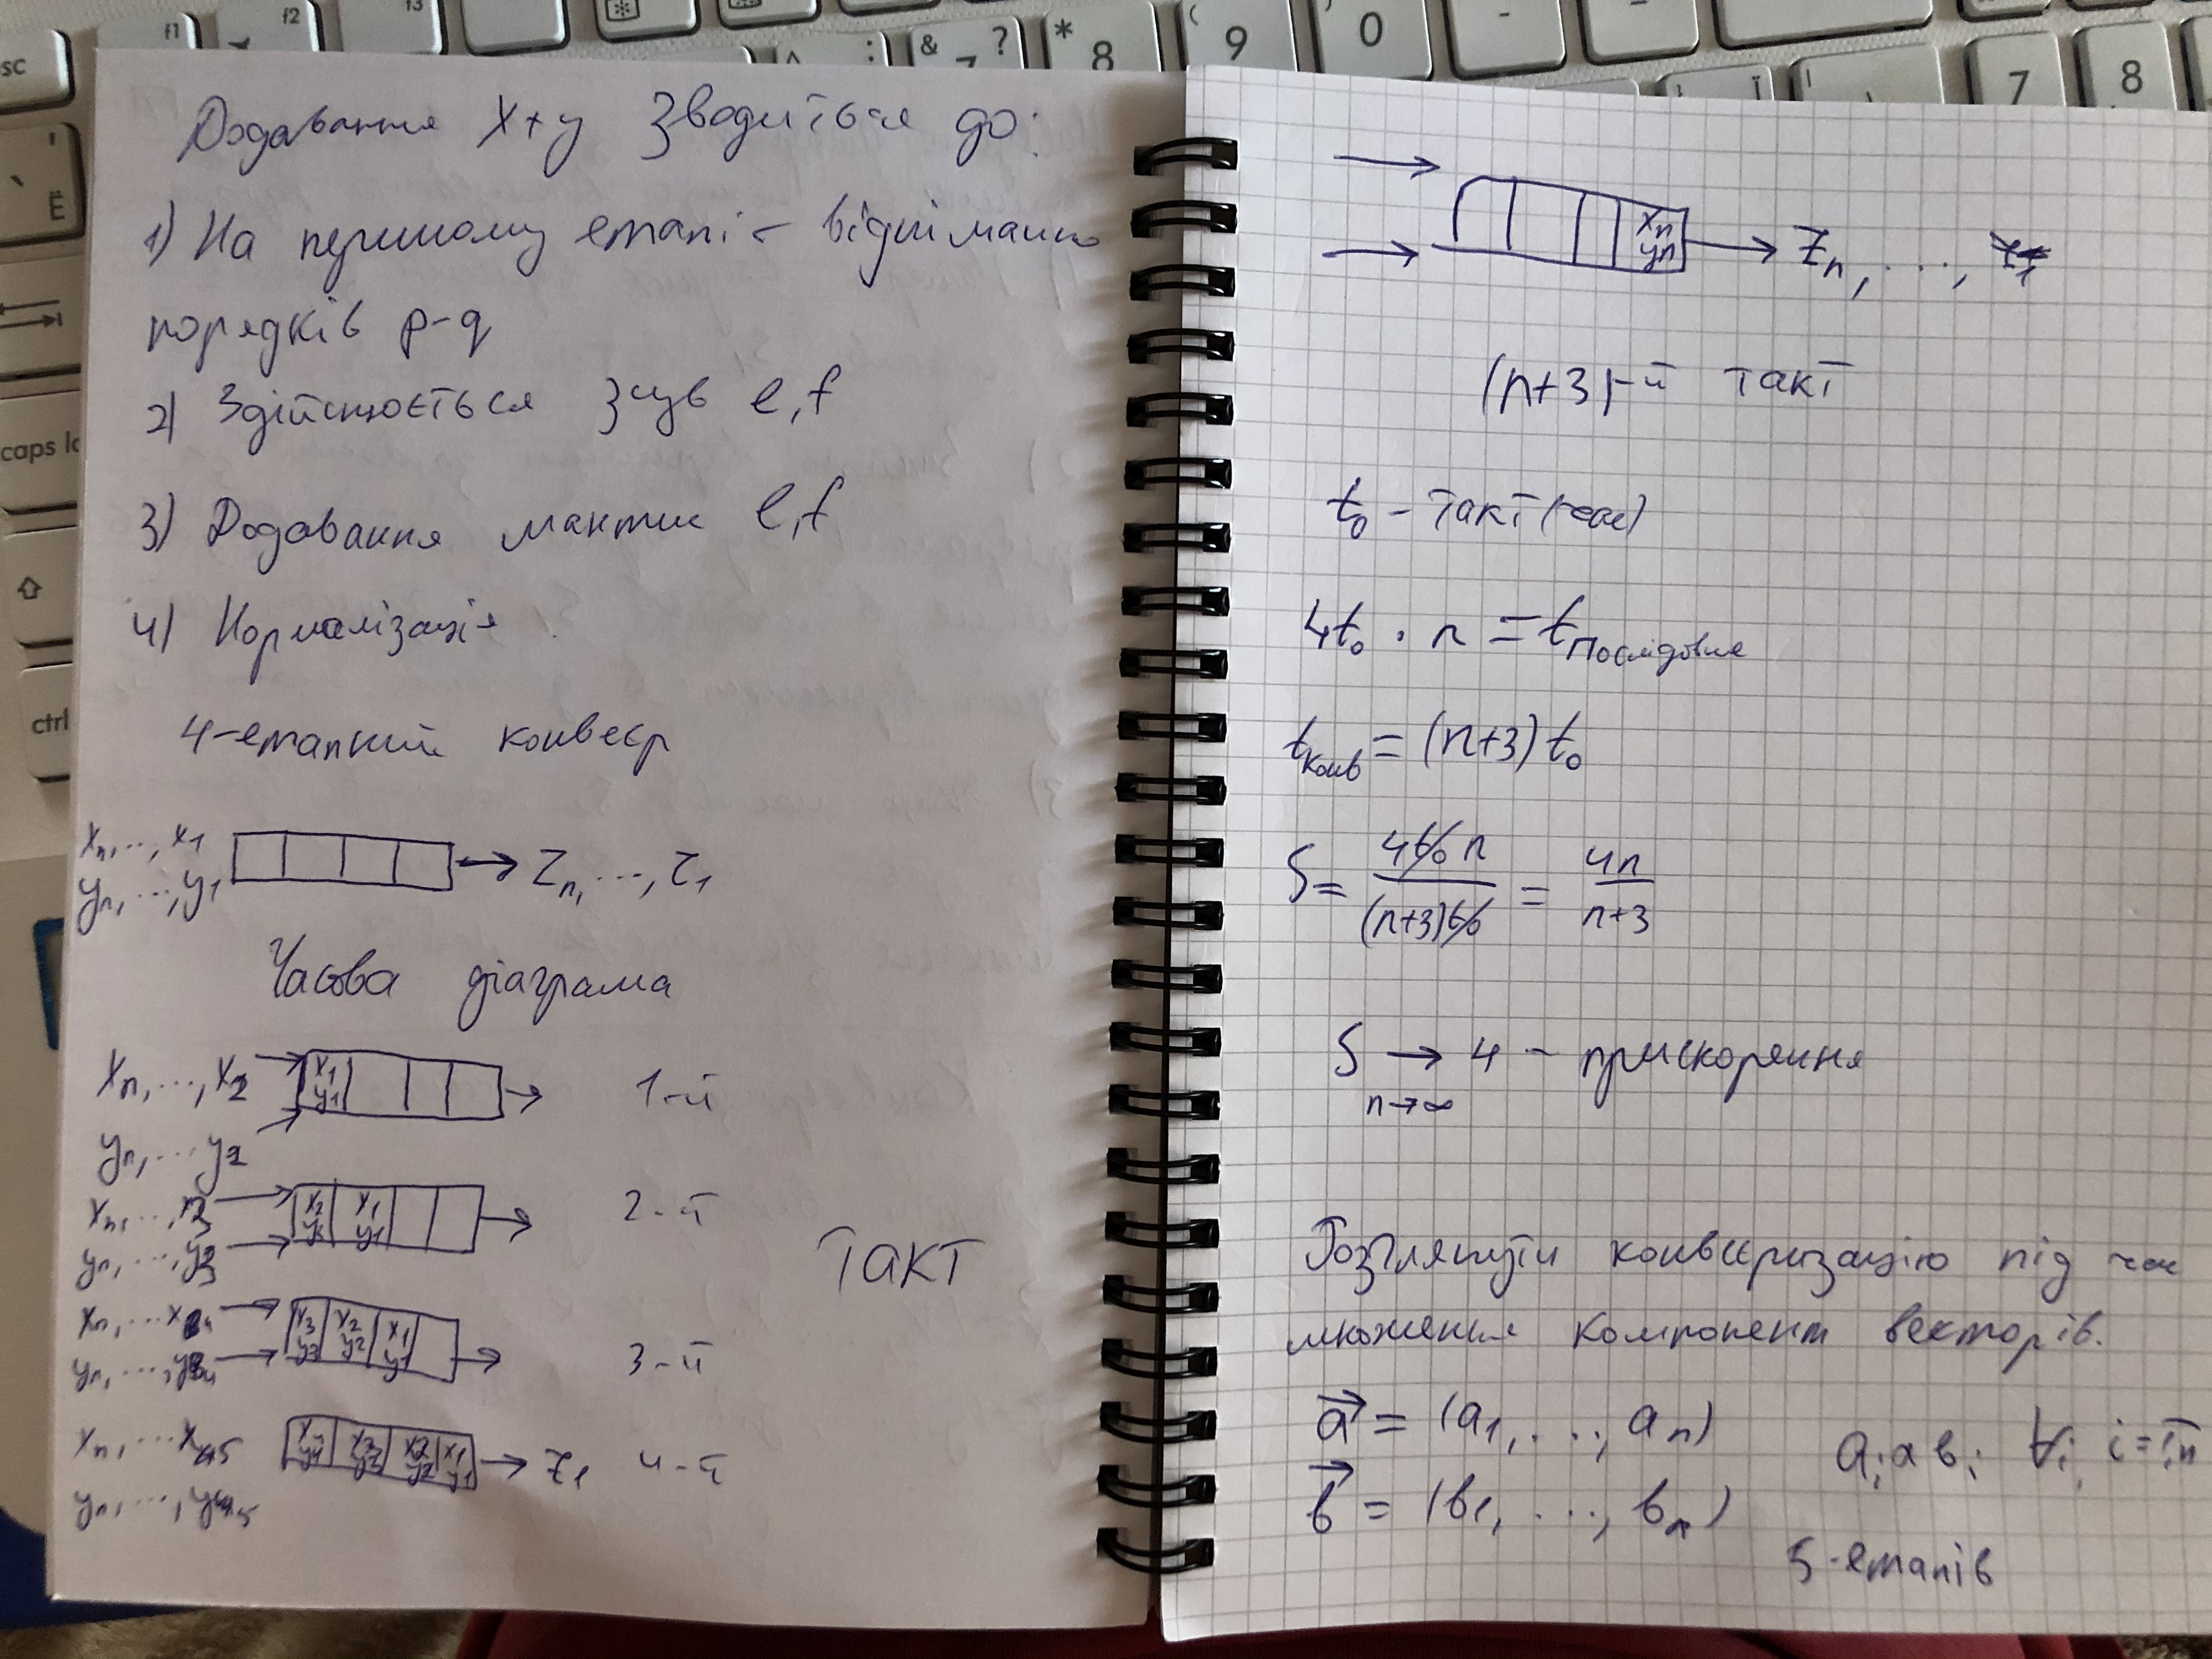 Додавання x+y зводиться до:
1) На першому етапі - віднімання
порядків p-q
2) Здійснюється зсув e,f
3) Додавання мантис e,f
4) Нормалізація
4-етапний конвеєр
xn,...,x1
yn,...,y1 → Zn,...,Z1
Часова діаграма
xn,...,x2 x1 y1 → 1-й
yn,...,y2
xn,...,x3 x2 y2 x1 y1 → 2-й
yn,...,y3
ТАКТ
xn,...x4 x3 y3 x2 y2 x1 y1 → 3-й
yn,...,y4
xn,...x5 x4 y4 x3 y3 x2 y2 x1 y1 → Z1 4-й
yn,...,y5
xn yn → Zn,...,
(n+3)-й такт
t0 - такт (час)
4t0 · n = tПослідовне
tконв = (n+3) t0
S = 4t0 n / (n+3)t0 = 4n / n+3
S → 4 - прискорення
n→∞
Розглянути конвеєризацію під час
множення компонент векторів.
a⃗ = (a1,...,an)
ai × bi ∀i, i=1,n
b⃗ = (b1,...,bn)
5-етапів
sc
f1
f2
f3
& 7 ?
* 8
( 9
) 0
-
7
8
Ї
Ё
caps lo
ctrl